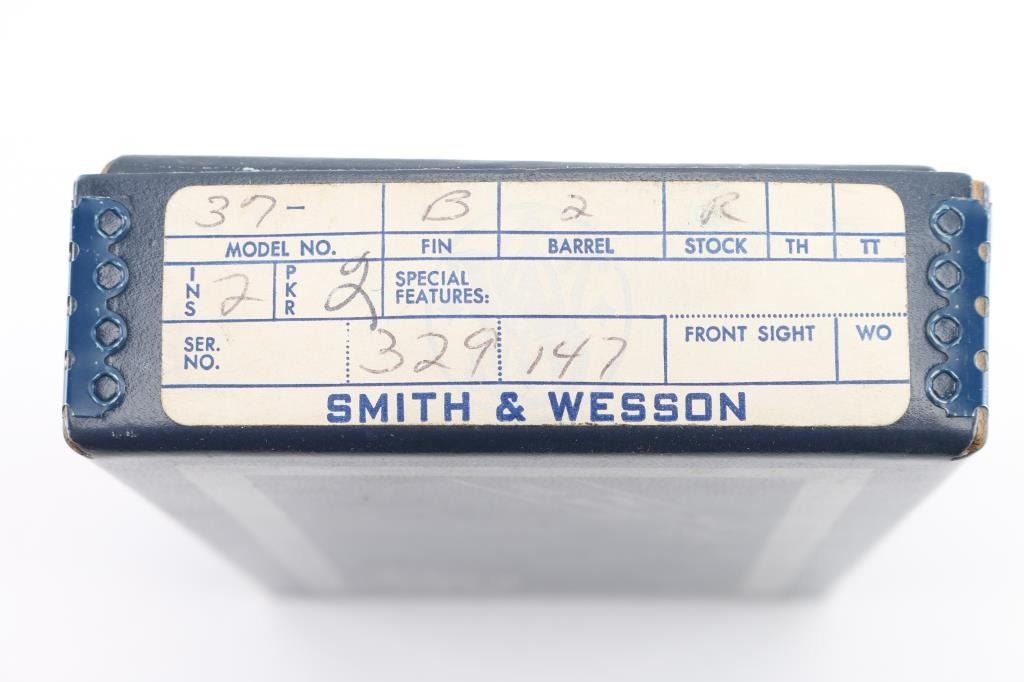 37- B 2 R
MODEL NO. FIN BARREL STOCK TH TT
INS 2 PKR 2 SPECIAL
FEATURES:
SER. 329 147 FRONT SIGHT WO
NO.
SMITH & WESSON